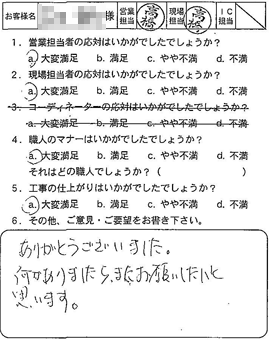 お客様名 様 営業担当 高橋 現場担当 高橋 IC担当
1. 営業担当者の応対はいかがでしたでしょうか?
a. 大変満足 b. 満足 c. やや不満 d. 不満
2. 現場担当者の応対はいかがでしたでしょうか?
a. 大変満足 b. 満足 c. やや不満 d. 不満
3. コーディネーターの応対はいかがでしたでしょうか?
a. 大変満足 b. 満足 c. やや不満 d. 不満
4. 職人のマナーはいかがでしたでしょうか?
a. 大変満足 b. 満足 c. やや不満 d. 不満
それはどの職人でしょうか? ( )
5. 工事の仕上がりはいかがでしたでしょうか?
a. 大変満足 b. 満足 c. やや不満 d. 不満
6. その他、ご意見・ご要望をお書き下さい。
ありがとうございました。
何かありましたら、またお願いしたいと
思います。